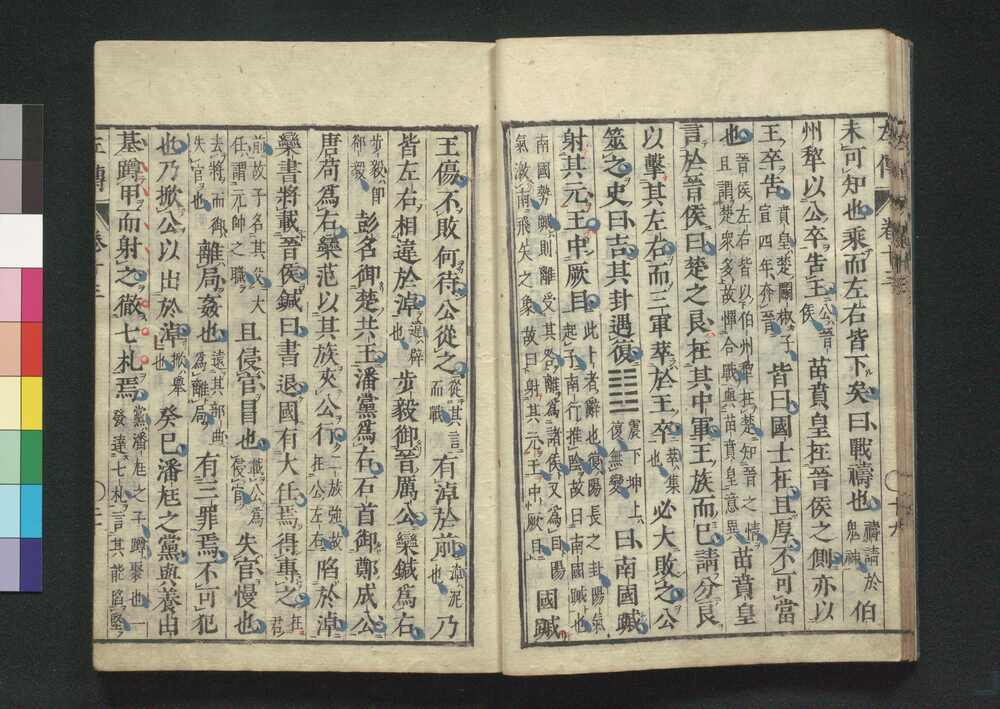 左傳 卷十三
未可知也乘而左右皆下矣曰戰禱也禱請於鬼神伯
州犂以公卒告王公晉侯苗賁皇在晉侯之側亦以
王卒告賁皇楚鬭椒子宣四年奔晉皆曰國士在且厚不可當
也晉侯左右皆以伯州犂在楚知晉之情且謂楚衆多故憚合戰與苗賁皇意異苗賁皇
言於晉侯曰楚之良在其中軍王族而已請分良
以擊其左右而三軍萃於王卒萃集也必大敗之公
筮之史曰吉其卦遇復震下坤上復無變曰南國䠞
射其元王中厥目此卜者辭也復陽長之卦陽氣起子南行推陰故曰南國䠞也
南國勢䠞則離受其咎離爲諸侯又爲目陽氣激南飛矢之象故曰射其元王中厥目國䠞
王傷不敗何待公從之從其言而戰有淖於前淖泥也乃
皆左右相違於淖違辟也步毅御晉厲公欒鍼爲右
步毅卽郤毅彭名御楚共王潘黨爲右石首御鄭成公
唐苟爲右欒范以其族夾公行二族強故在公左右陷於淖
欒書將載晉侯鍼曰書退國有大任焉得專之在君
前故子名其父大任謂元帥之職且侵官冒也載公爲侵官失官慢也
去將而御失官也離局姦也遠其部曲爲離局有三罪焉不可犯
也乃掀公以出於淖掀舉也癸巳潘尫之黨與養由
基蹲甲而射之徹七札焉黨潘尫之子蹲聚也一發達七札言其能陷堅
左傳 卷十三